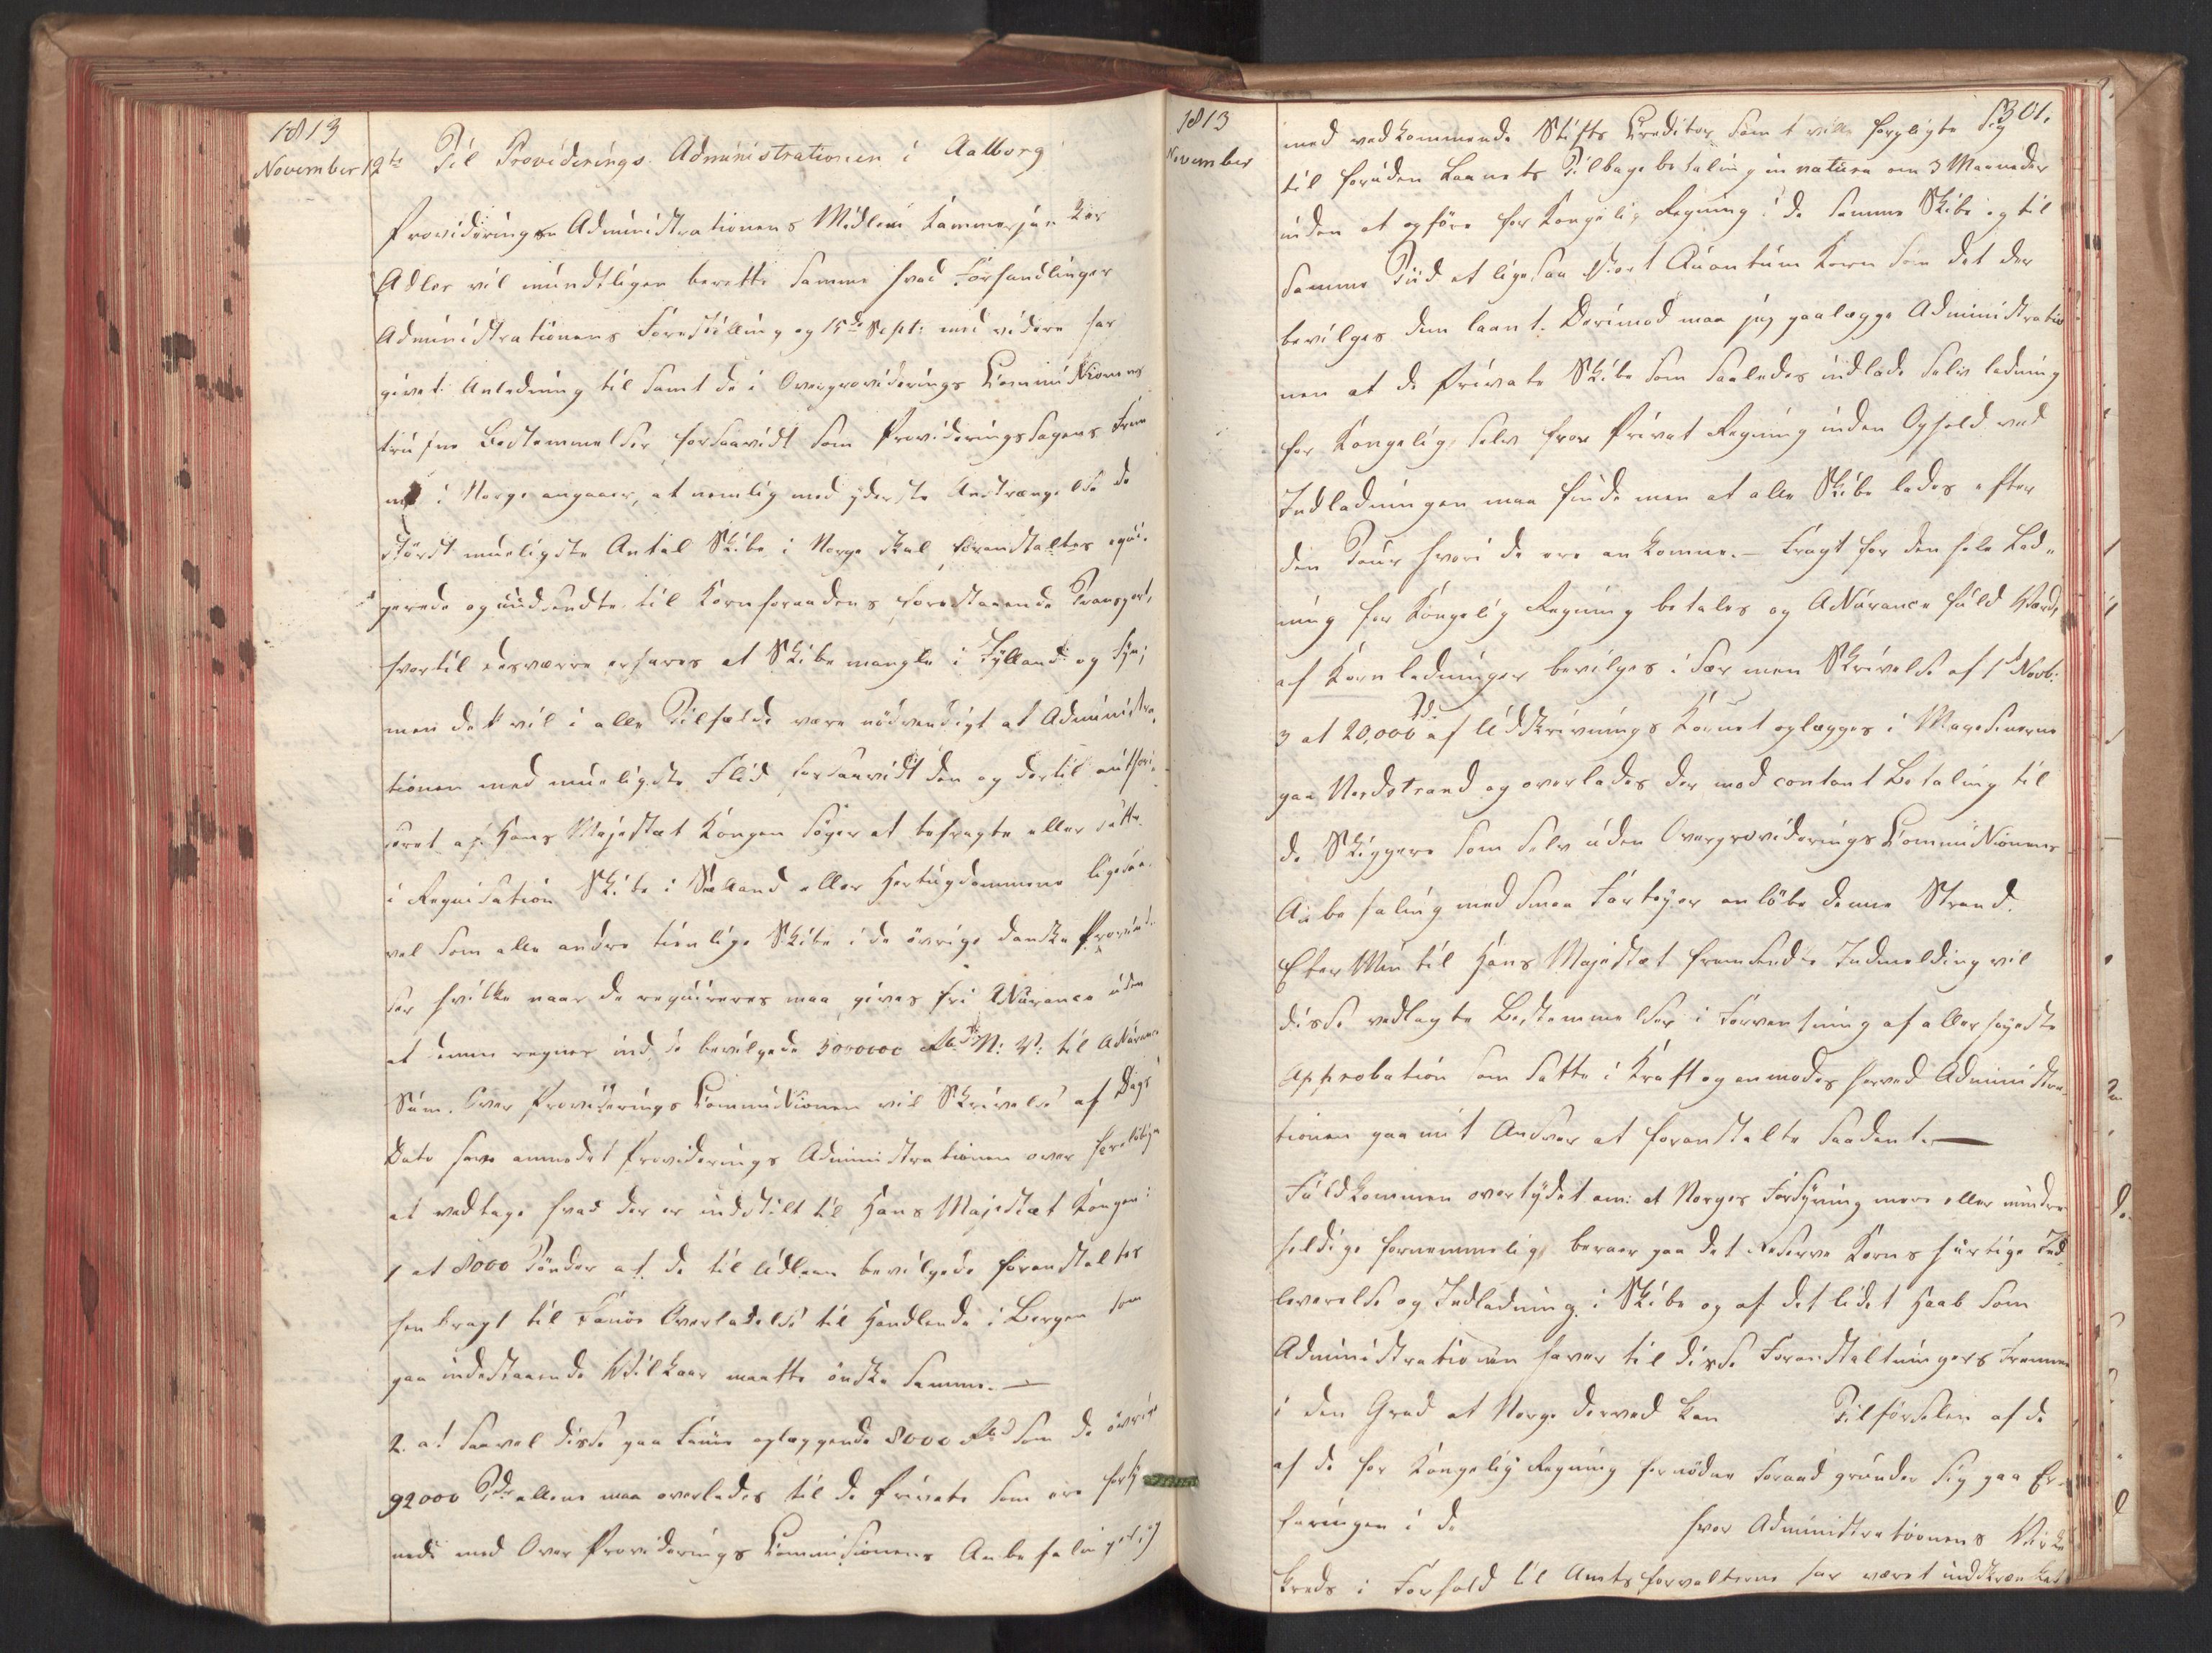 1813
November 12te Til Providerings Administrationen i Aalborg
Provideringen Administrationens Medlem Kammerjun ker
Adler vil mundtligen berette samme hvad Forhandlinger
Administrationens Forestilling og 15de Sept: med videre har
givet Anledning til samt de i Overproviderings Commissionens
trufne Bestemmelser forsaavidt som Provideringssagens Frem
i Norge angaaer, at nemlig med yderste Anstrængelse de
störst mueligste Antal Skibe i Norge skal foranstaltes eqvi-
perede og uudsendte til Kornforraadens forestaaende Transport,
hvortil desværre erfares at Skibe mangle i Jylland og Fyn;
men dette vil i alle Tilfælde være nödvendigt at Administra-
tionen med mueligste Flid forsaavidt den og dertil authori-
seret af Hans Majestæt Kongen söger at befragte eller sætte
i Reqvisation Skibe i Sælland eller Hertugdommene ligesaa-
vel som alle andre tienlige Skibe i de övrige danske Provind-
ser hvilke naar de reqvireres maa gives fri Assurance uden
at denne regnes ind i de bevilgede 5000000 Rbd N: V: til Assurance
Sum. Over Provideringe Commissionen vil Skrivelse af Dags
Dato have anmodet Providerings Administrationen over forelöbigen
at vedtage hvad der er indstilt til Hans Majestæt Kongen:
1 at 8000 Tönder af de til Udlaan bevilgede foranstaltes
henbragt til Fanöe Overladelse til Handlende i Bergen som
paa indestaaende Vilkaar maatte önske samme. —
2. at saavel disse paa Fanöe oplæggende 8000 Tdr som de övrige
92000 Tdr allene maa overlades til de Private som ere forsy
nede med Over Providerings Commissionens Anbefaling og
1813
November
301.
med vedkommende Stifts Creditor som t ville forpligte sig
til foruden Laanets Tilbagebetaling in natura om 3 Maaneder
inden at opföre for Kongelig Regning i de samme Skibe og til
samme Tiid et ligesaa stort Quantum Korn som det der
bevilges dem laant. Derimod maa jeg paalægge Administratio
nen at de Private Skibe som saaledes indlade halv ladning
for Kongelig, halv for Privat Regning inden Ophold ved
Indladningen maa finde men at alle Skibe lades efter
den Tour hvori de ere ankomne. — Fragt for den hele Lad-
ning for Kongelig Regning betales og Assurance fuld Værdi
af Kornladninger bevilges i Dær men Skrivelse af 1d Novb:
3 at 20,000 Td: af Udskrivnings Kornet oplægges i Magasinerne
paa Nordstrand og overlades der mod contant Betaling til
de Skippere som selv uden Overprovideringe Commissionens
Anbefaling med smaa Fartöyer anlöbe denne Strand.
Efter Min til Hans Majestæt fremsendte Indmelding vil
disse vedtagte Bestemmelser i Forventning af allerhöyeste
Approbation som satte i Kraft og anmodes herved Administra-
tionen paa mit Ansvar at foranstalte saadant. —
Fuldkommen overtydet om: at Norges Forsyning mere eller mindre
heldige fornemmelig beroer paa det Reserve Korns hurtige Ind-
leverelse og Indladning i Skibe og af det lidet Haab som
Administrationen haver til disse Foranstaltningers Fremme
i den Grad at Norge derved kan Tilförselen af de
af de for Kongelig Regning fornödne Foraad grunder sig paa Er-
faringen i de hvor Administrationens Virke
kreds i Forhold til Amtsforvalterne har været indskrænket